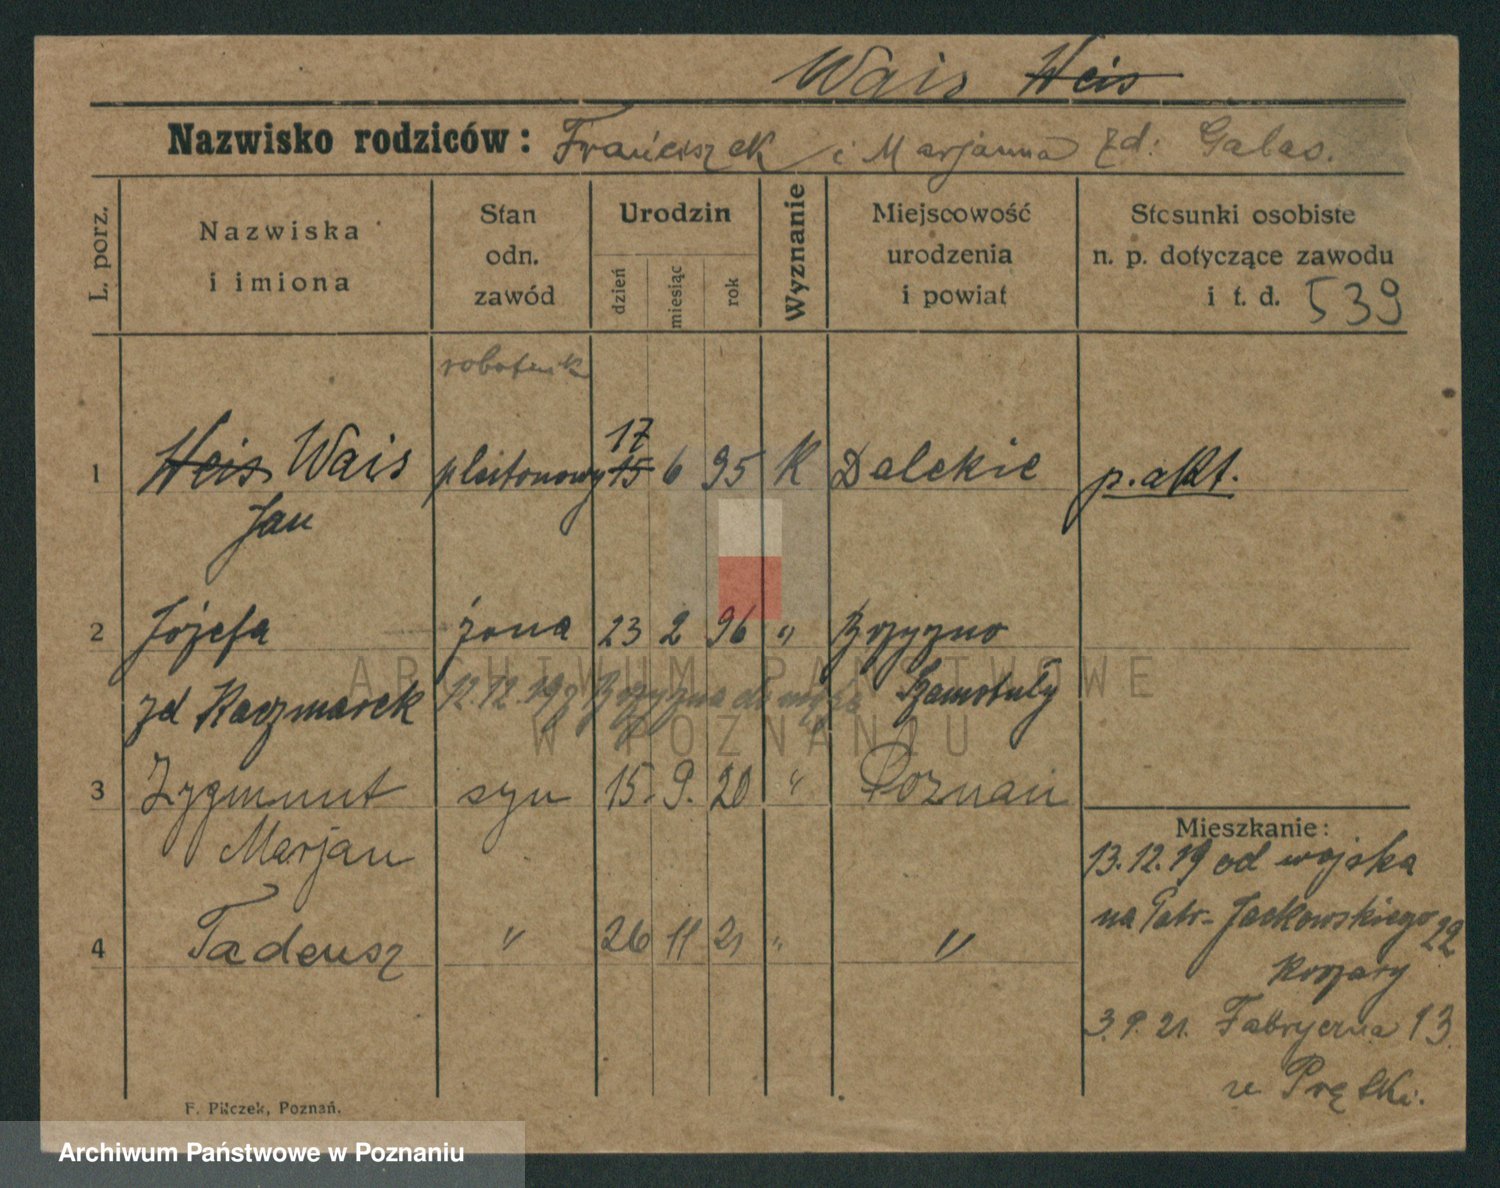 Wais Weis
Nazwisko rodziców: Franciszek i Marjanna zd: Galas.
L. porz.
Nazwiska
i imiona
Stan
odn.
zawód
Urodzin
dzień
miesiąc
rok
Wyznanie
Miejscowość
urodzenia
i powiat
Stosunki osobiste
n. p. dotyczące zawodu
i t. d. 539
robotnik
17
1 Weis Wais plutonowy 15 6 95 K Dalekie p. akt.
Jan
2 Józefa żona 23 2 96 " Brzyzno
zd Kaczmarek 12.12.19 Szamotuły
3 Zygmunt syn 15. 9. 20 " Poznań
Marjan
4 Tadeusz " 26 11 21 " "
Mieszkanie:
13.12.19 od wojska
na Patr. Jackowskiego 22
Koszary
3.9.21. Fabryczna 13
F. Pilczek, Poznań.
ARCHIWUM PAŃSTWOWE
W POZNANIU
Archiwum Państwowe w Poznaniu